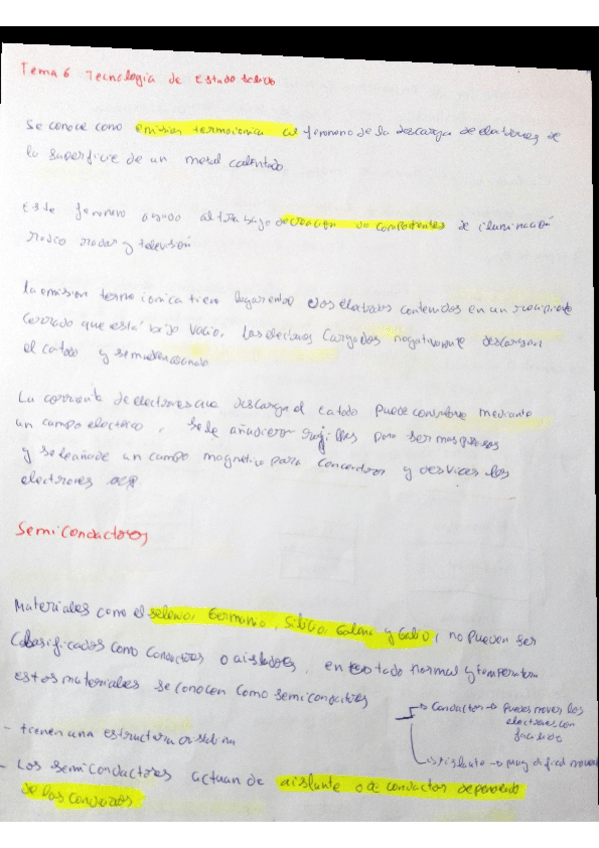 Tema 6 Tecnologia de Estado solido
Se conoce como emision termoionica al fenomeno de la descarga de electrones de
la superficie de un metal calentado
Este fenomeno ayudo al trabajo de creacion de componentes de iluminación
radio radar y television
la emision termoionica tiene lugar entre dos electrodos contenidos en un recipiente
cerrado que está bajo vacio. Los electrones cargados negativamente descargan
el catodo y se mueven
La corriente de electrones que descarga el catodo puede controlarse mediante
un campo electrico, se le añadieron rejillas para ser mas precisos
y se le añade un campo magnetico para concentrar y desviar los
electrones
Semiconductores
Materiales como el selenio, Germanio, Silicio, Galena y Galio, no pueden ser
clasificados como conductores o aislados, en estado normal y temperatura
estos materiales se conocen como semiconductores
Conductor → Puedes mover los
electrones con
facilidad
- tienen una estructura cristalina
aislante → muy dificil mover
- Los semiconductores actuan de aislante o de conductor dependiendo
de las condiciones